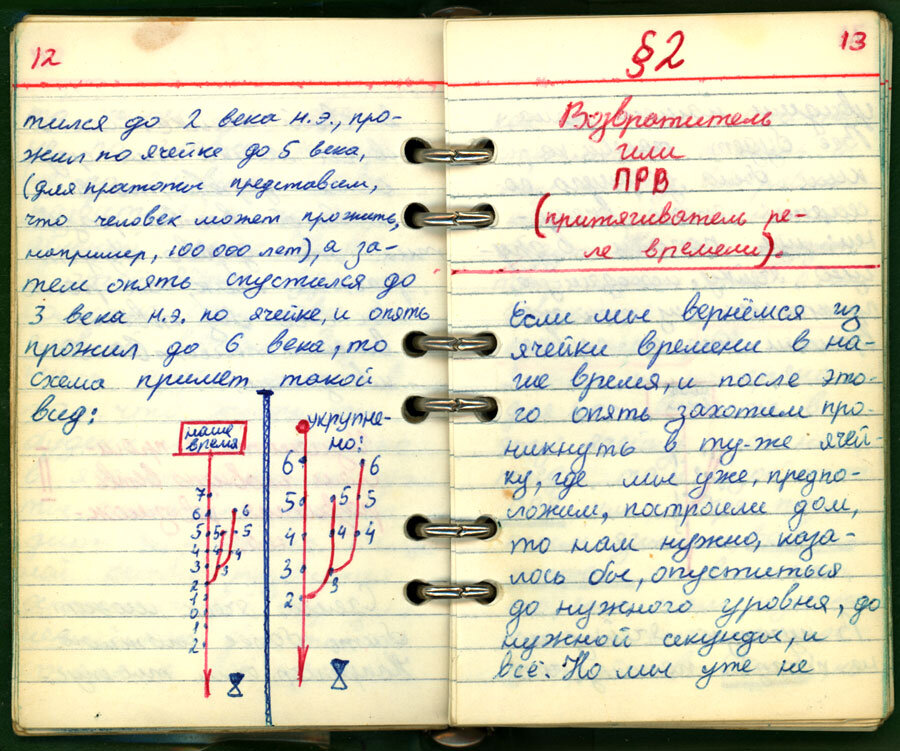 12
тился до 2 века н.э., про-
жил по ячейке до 5 века,
(для простоты представим,
что человек может прожить,
например, 100 000 лет), а за-
тем опять спустился до
3 века н.э. по ячейке, и опять
прожил до 6 века, то
схема примет такой
вид:
наше
время
7
6
5 5 5
6
4 4 4
3 3
2
1
0
1
2
укрупне-
но:
6 6
5 5 5
4 4 4
3 3
2
13
§2
Возвратитель
или
ПРВ
(притягиватель ре-
ле времени).
Если мы вернёмся из
ячейки времени в на-
ше время, и после это-
го опять захотим про-
никнуть в ту-же ячей-
ку, где мы уже, предпо-
ложим, построили дом,
то нам нужно, каза-
лось бы, опуститься
до нужного уровня, до
нужной секунды, и
всё. Но мы уже не